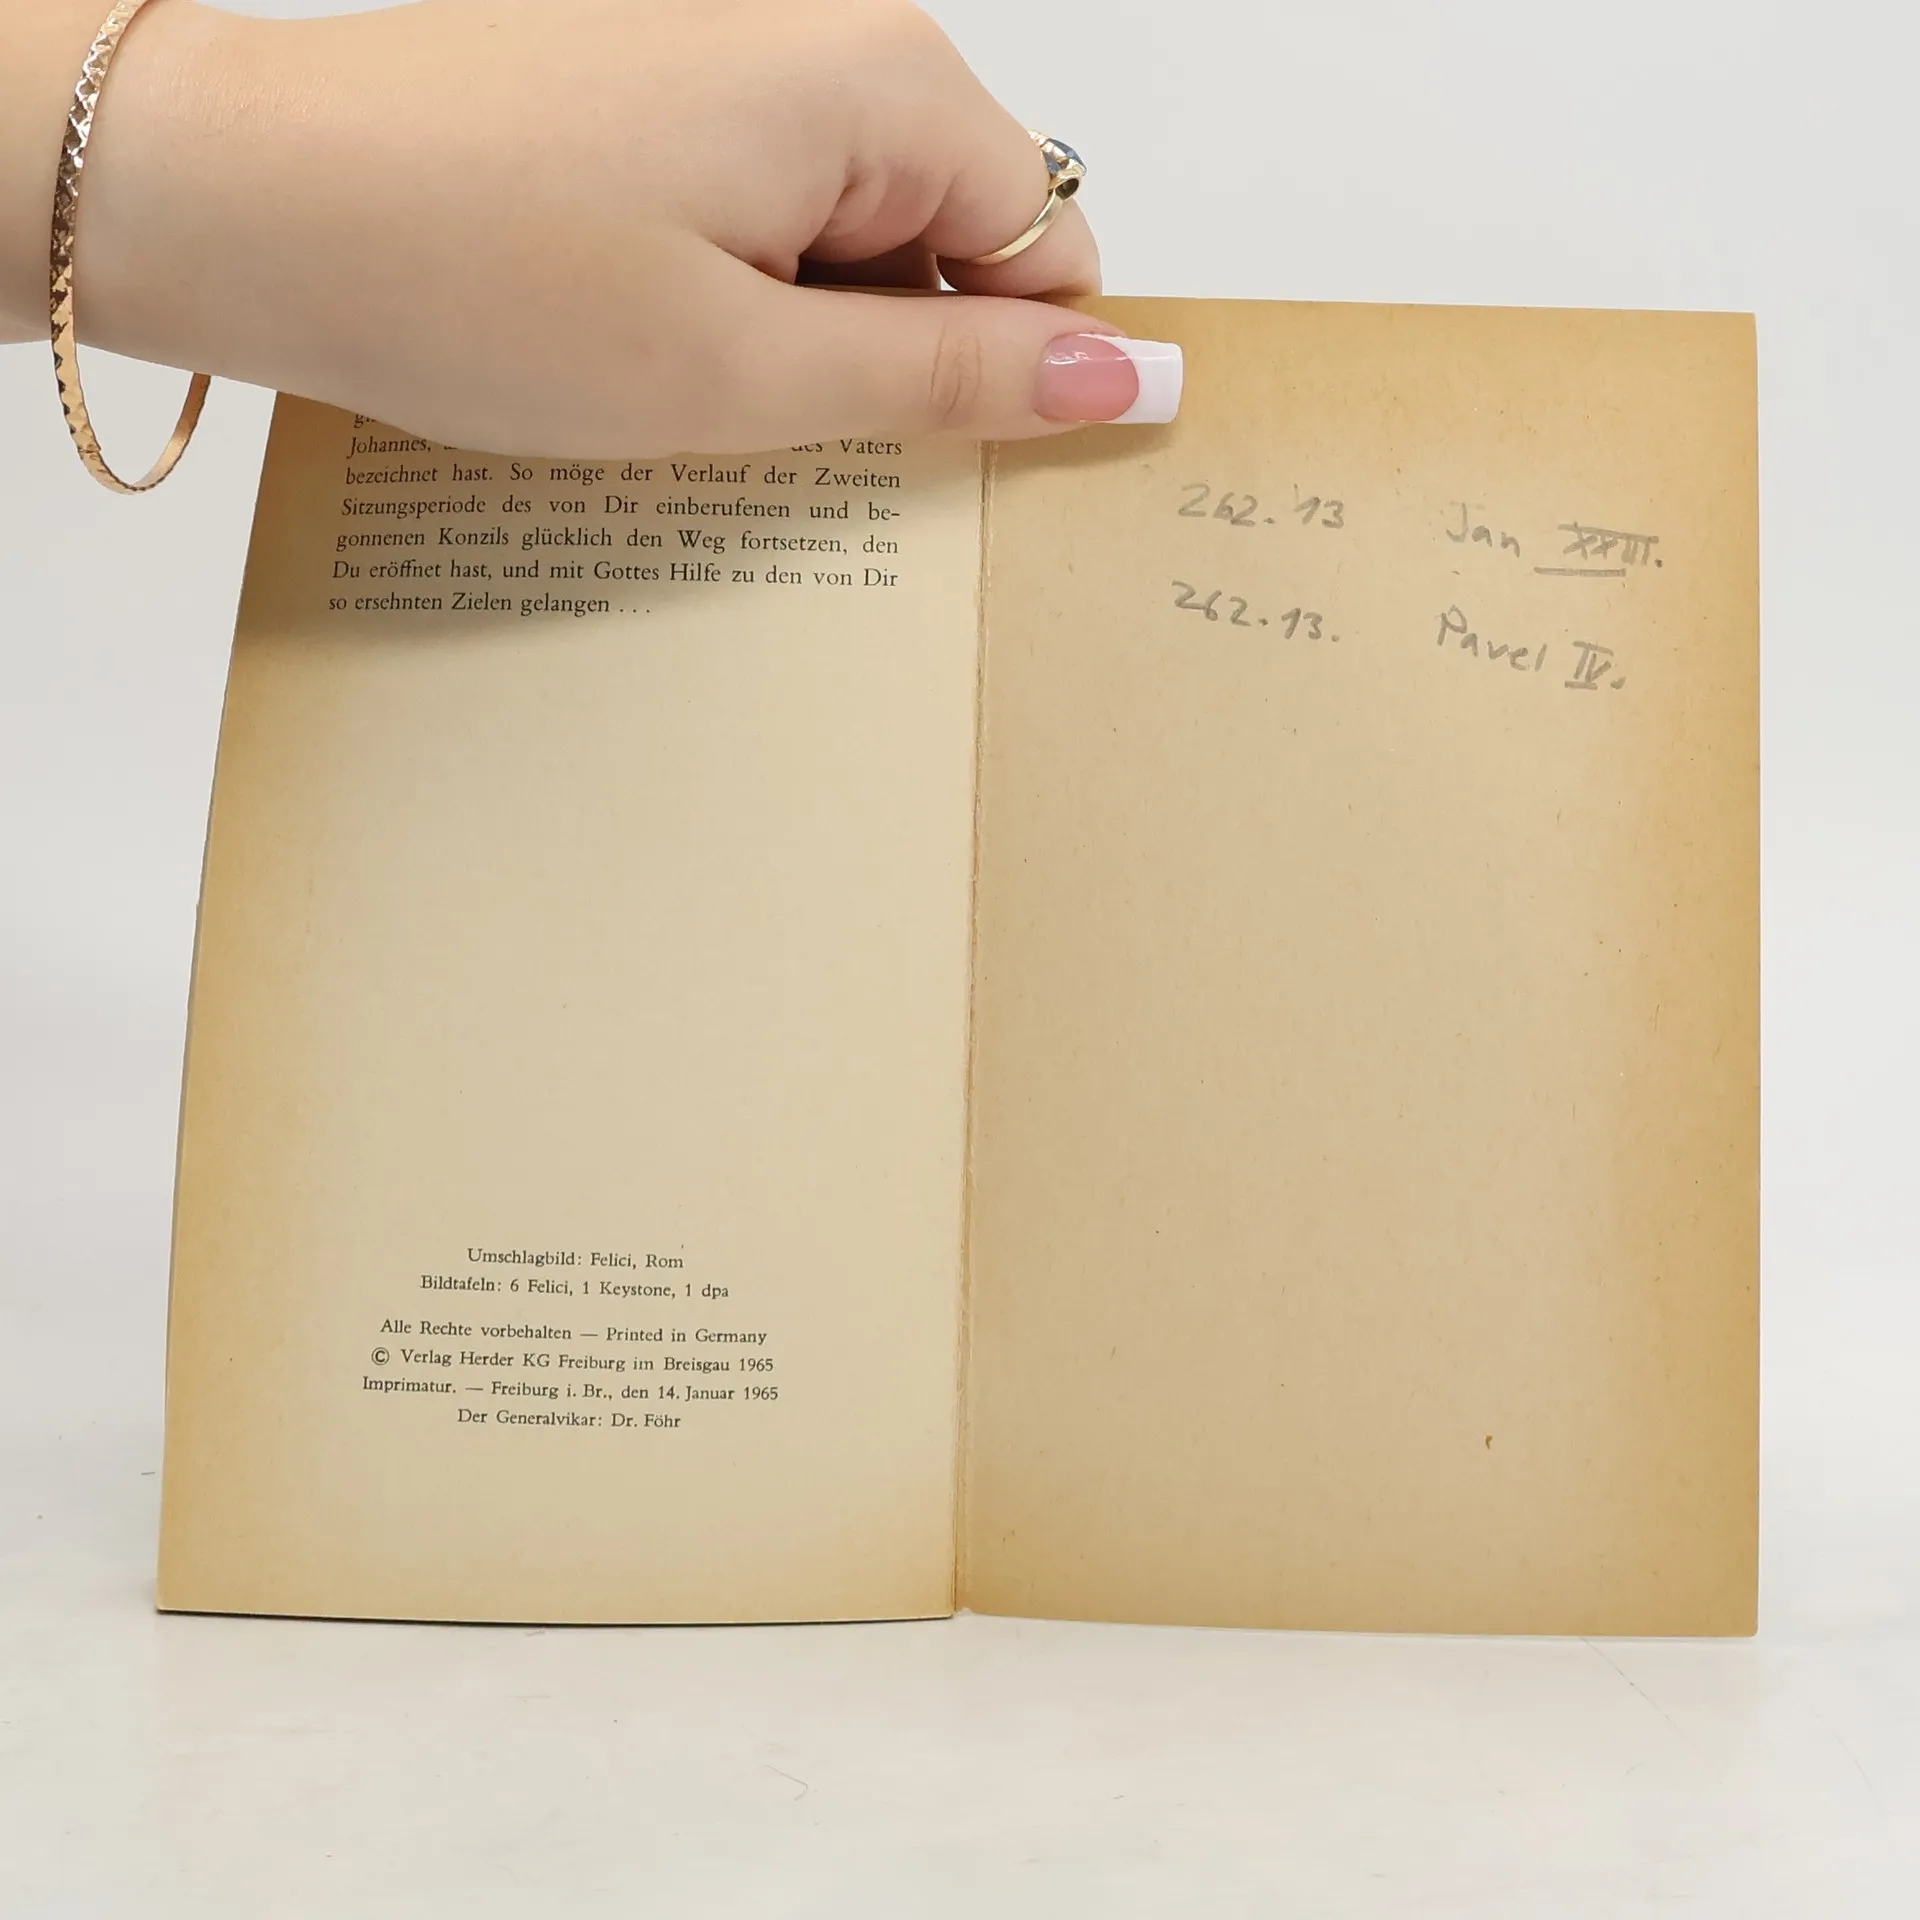 Johannes, des Vaters
bezeichnet hast. So möge der Verlauf der Zweiten
Sitzungsperiode des von Dir einberufenen und be-
gonnenen Konzils glücklich den Weg fortsetzen, den
Du eröffnet hast, und mit Gottes Hilfe zu den von Dir
so ersehnten Zielen gelangen . . .
Umschlagbild: Felici, Rom
Bildtafeln: 6 Felici, 1 Keystone, 1 dpa
Alle Rechte vorbehalten — Printed in Germany
© Verlag Herder KG Freiburg im Breisgau 1965
Imprimatur. — Freiburg i. Br., den 14. Januar 1965
Der Generalvikar: Dr. Föhr
262.13 Jan XXIII.
262.13. Pavel IV.